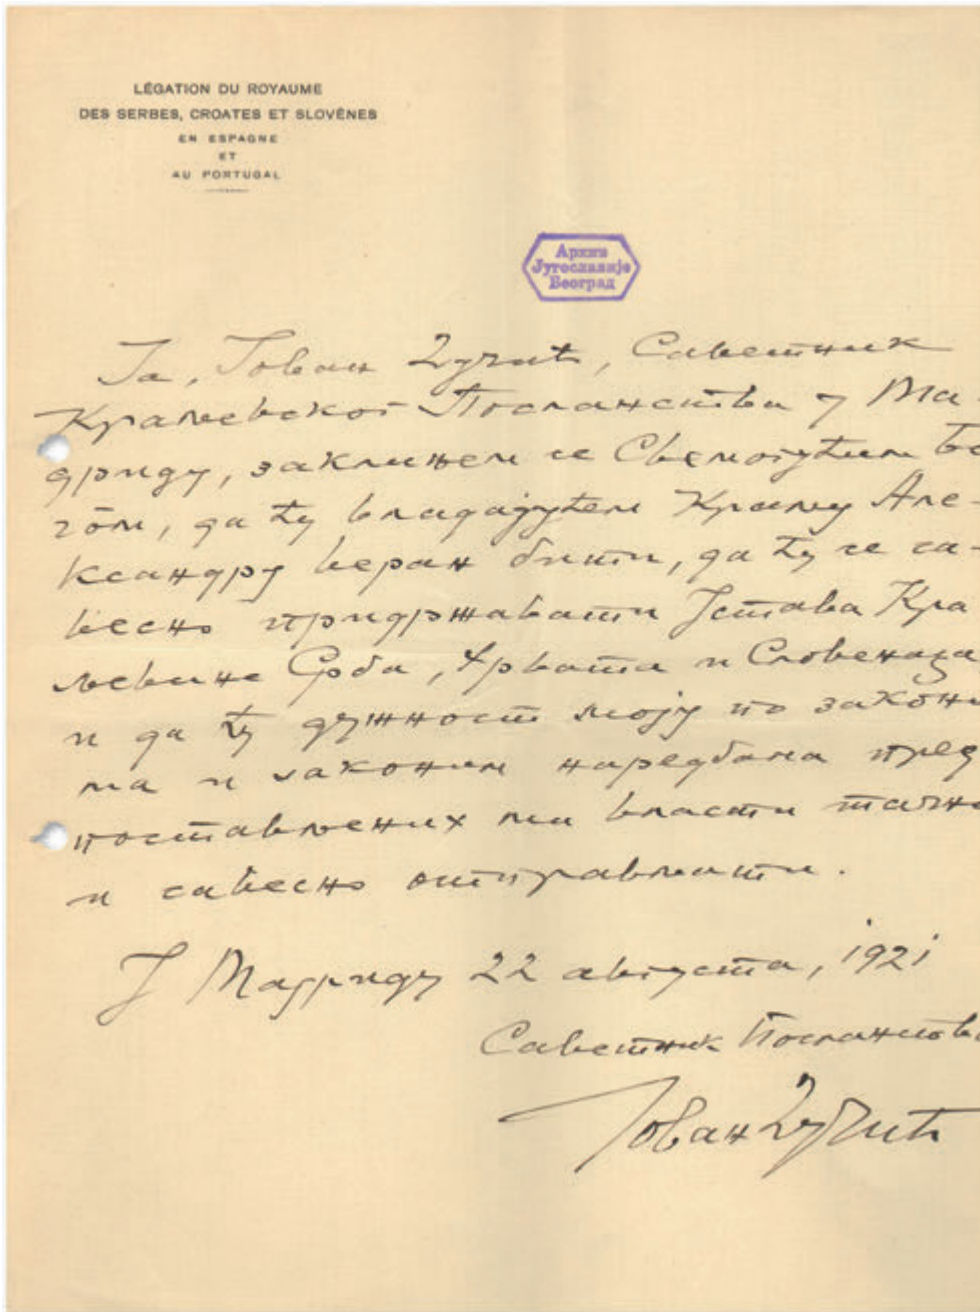 LÉGATION DU ROYAUME
DES SERBES, CROATES ET SLOVÈNES
EN ESPAGNE
ET
AU PORTUGAL
Архив
Југославије
Београд
Ја, Јован Дучић, Саветник
Краљевског Посланства у Ма-
дриду, заклињем се Свемогућим Бо
гом, да ћу владајућем Краљу Але-
ксандру веран бити, да ћу се са-
весно придржавати Устава Кра
љевине Срба, Хрвата и Словенаца
и да ћу дужност моју по закони
ма и законим наредбама пред
постављених ми власти тачно
и савесно отправљати.
У Мадриду 22 августа, 1921
Саветник Посланства
Јован Дучић